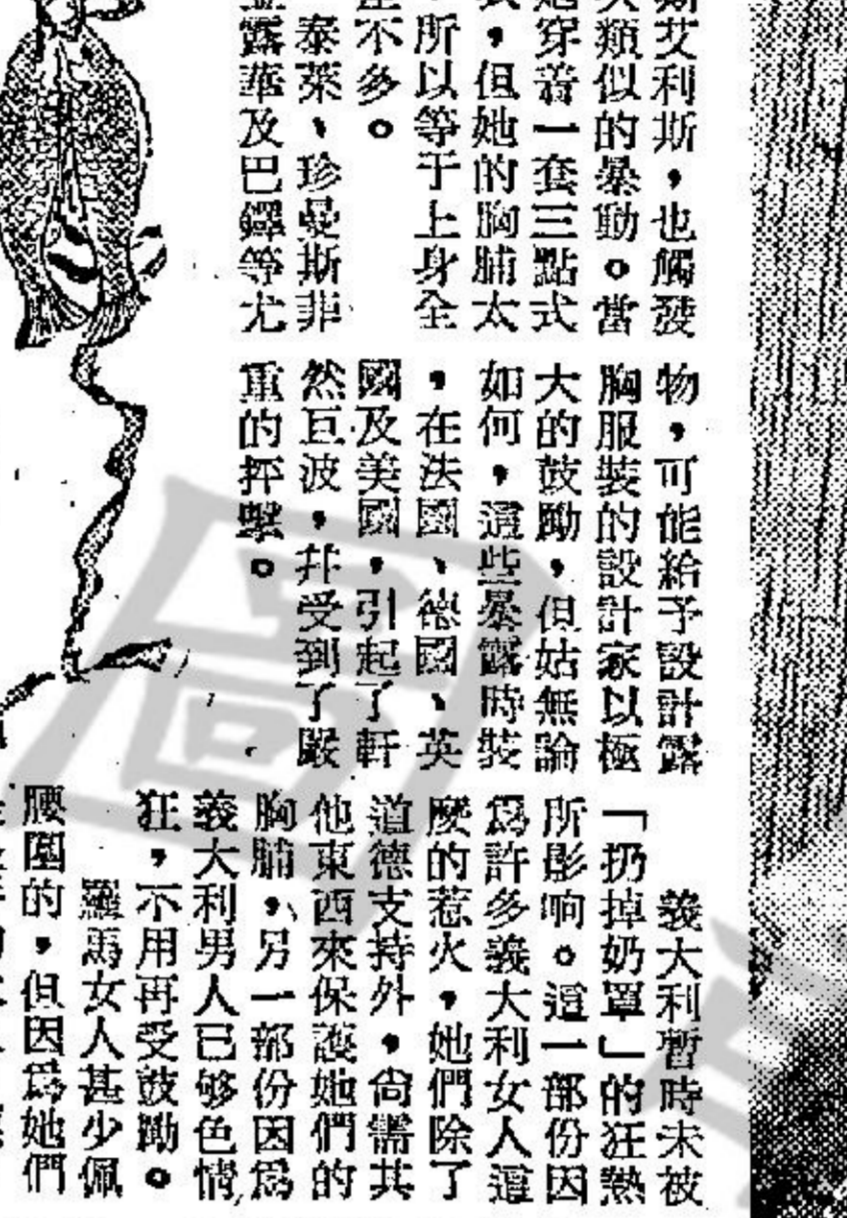 斯艾利斯，也觸發
類似的暴動。當
她穿着一套三點式
，但她的胸脯太
，所以等于上身全
不多。
泰萊、珍曼斯菲
露華及巴鐸等尤
物，可能給予設計露
胸服裝的設計家以極
大的鼓勵，但姑無論
如何，這些暴露時裝
，在法國、德國、英
國及美國，引起了軒
然巨波，幷受到了嚴
重的抨擊。
義大利暫時未被
「扔掉奶罩」的狂熱
所影响。這一部份因
爲許多義大利女人這
麼的惹火，她們除了
道德支持外，尙需其
他東西來保護她們的
胸脯，另一部份因爲
義大利男人已够色情
狂，不用再受鼓勵。
羅馬女人甚少佩
腰圍的，但因爲她們
圖